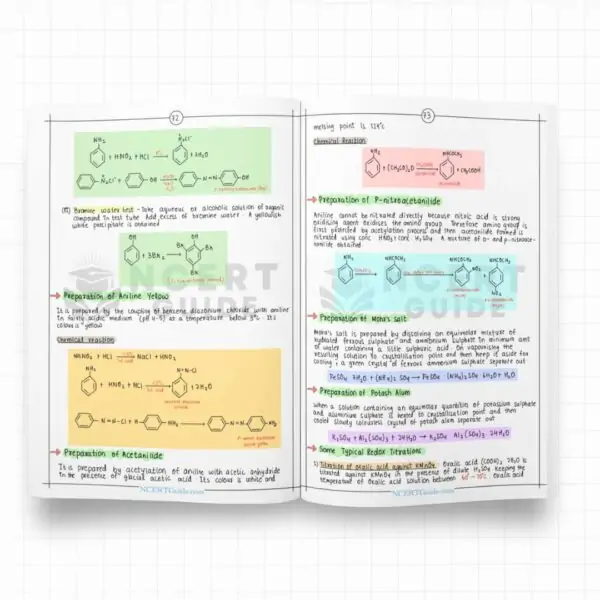 72
NH2
+ HNO2 + HCl
+ 2H2O
N2Cl- +
OH
N = N
OH
(iii) Bromine water test - Take aqueous or alcoholic solution of organic
compound in test tube Add excess of bromine water. A yellowish
white precipitate is obtained
OH
+ 3Br2
OH
Br
Br
Br
→ Preparation of Aniline Yellow
It is prepared by the coupling of benzene diazonium chloride with aniline
in fairly acidic medium (pH 4-5) at a temperature below
colour is "yellow
Chemical reaction
NaNO2 + HCl
NaCl + HNO2
NH2
+ HNO2 + HCl
N=N-Cl
+ 2H2O
N=N-Cl + H
NH2
N=N
NH2
→ Preparation of Acetanilide
It is prepared by acetylation of aniline with acetic anhydride
in the presence of glacial acetic acid Its colour is white and
NCERTGuide.com
73
melting point is 114°c
Chemical Reaction
NH2
+ (CH3CO)2O
NHCOCH3
+ CH3COOH
→ Preparation of P-nitroacetanilide
Aniline cannot be nitrated directly because nitric acid is strong
oxidising agent oxidises the amino group Therefore amino group is
first protected by acetylation process and then acetanilide formed is
nitrated using conc HNO3 + conc H2SO4. A mixture of o- and p-nitroace-
tanilide obtained
NH2
NHCOCH3
NHCOCH3
NO2
NHCOCH3
NO2
→ Preparation of Mohr's salt
Mohr's salt is prepared by dissolving an equimolar mixture of
hydrated ferrous sulphate and ammonium sulphate in minimum amt
of water containing a little sulphuric acid. On vapourising the
resulting solution to crystallisation point and then keep it aside for
cooling, a green crystal of ferrous ammonium sulphate separate out
FeSO4 7H2O + (NH4)2 SO4 → FeSO4 (NH4)2 SO4 6H2O + H2O
→ Preparation of Potash Alum
When a solution containing an equimolar quantities of potassium sulphate
and aluminium sulphate is heated to crystallization point and then
cooled slowly colourless crystal of potash alum separate out
K2SO4 + Al2(SO4)3 + 24H2O → K2SO4 Al2(SO4)3 24H2O
→ Some Typical Redox Titrations
Titration of oxalic acid against KMnO4 Oxalic acid (COOH)2 2H2O is
titrated against KMnO4 in the presence of dilute H2SO4 keeping the
temperature of oxalic acid solution between 60°-70°C Oxalic acid
NCERTGuide.com
NCERT
GUIDE
NCERT
GUIDE